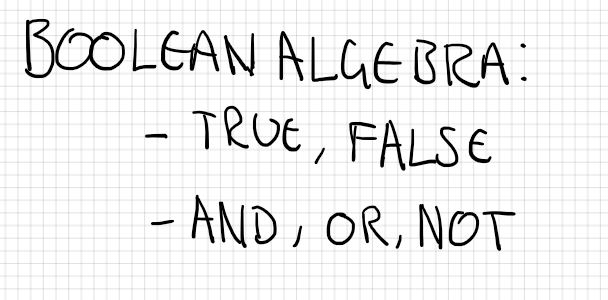 BOOLEAN ALGEBRA:
- TRUE, FALSE
- AND, OR, NOT